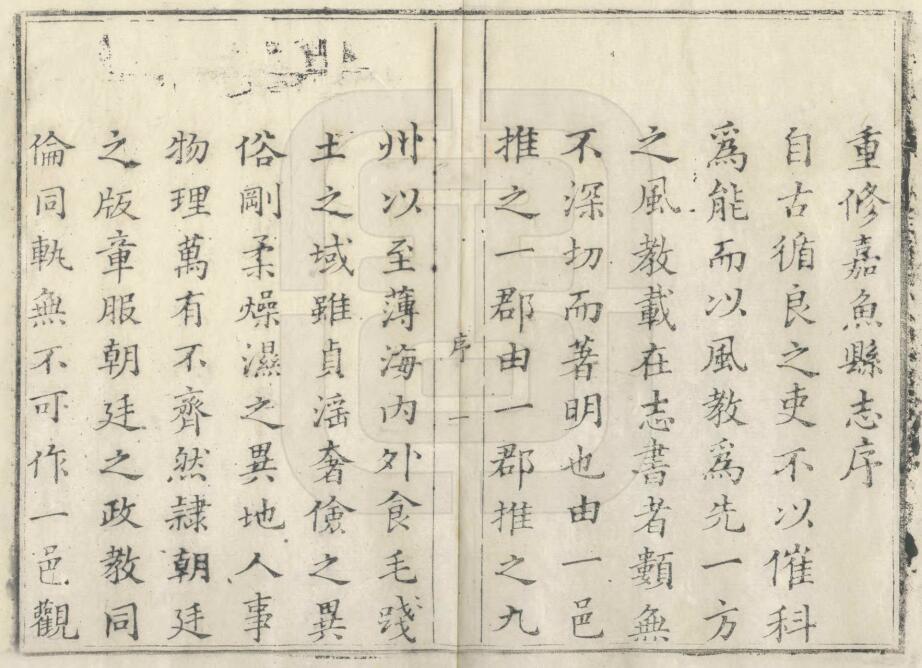 重修嘉魚縣志序
自古循良之吏不以催科
爲能而以風教爲先一方
之風教載在志書者顜無
不深切而著明也由一邑
推之一郡由一郡推之九
序 一
州以至薄海內外食毛踐
土之域雖貞滛奢儉之異
俗剛柔燥濕之異地人事
物理萬有不齊然隷朝廷
之版章服朝廷之政教同
倫同軌無不可作一邑觀